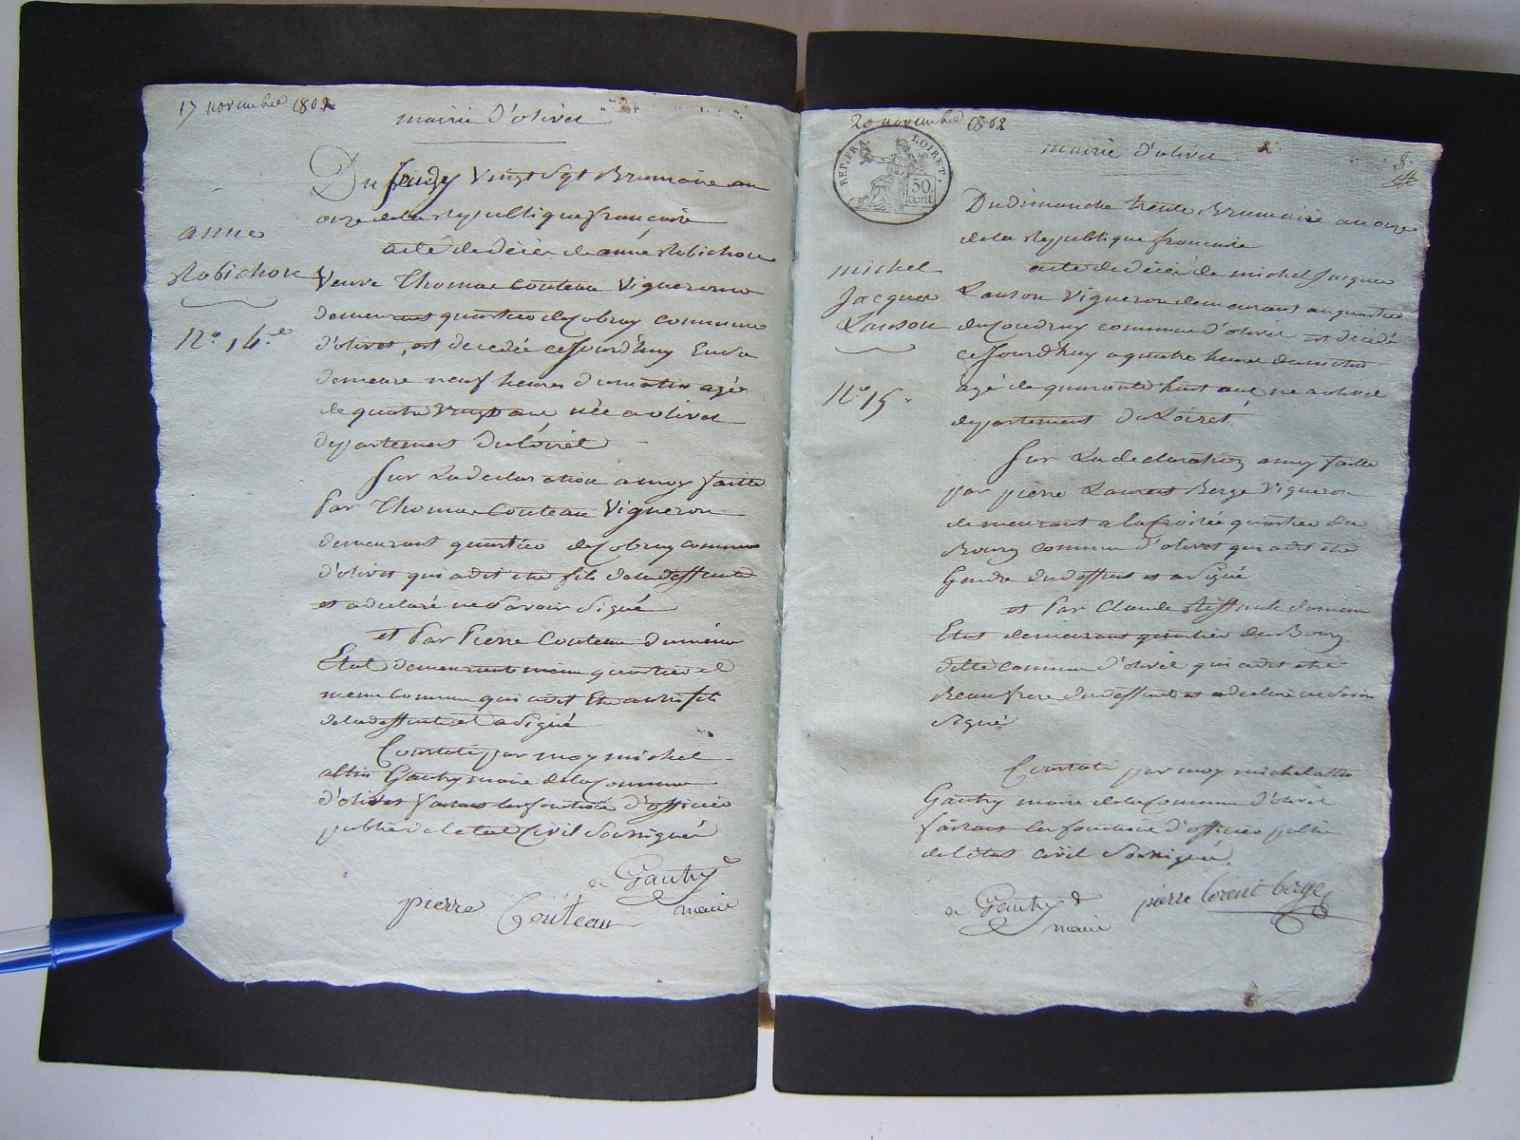 17 novembre 1802
mairie d'olivet
Du Jeudy Vingt Sept Brumaire an
onze de la Republique francaise
acte de décès de anne Robichon
Veuve Thomas Couteau Vigneronne
demeurant quartier de Cobray commune
d'olivet, est decedée ce Jourd'huy En sa
demeure neuf heures du matin agée
de quatre Vingt ans née a olivet
departement du Loiret
Sur La declaration a moy faitte
Par Thomas Couteau Vigneron
demeurant quartier de Cobray commune
d'olivet qui a dit etre fils de la deffunte
et a declaré ne Savoir Signé
et Par Pierre Couteau du même
Etat demeurant même quartier et
meme commune qui a dit Etre aussi fils
de la deffunte et a Signé
Constaté par moy michel
Gautry maire de la Commune
d'olivet faisant les fonctions d'officier
public de letat Civil Soussigné
Gautry
maire
pierre Couteau
anne
Robichon
No. 14.
20 novembre 1802
REP. FRA. LOIRET.
50 cent
mairie d'olivet
8
Du dimanche trente Brumaire an onze
de la Republique francaise
acte de décès de michel Jacques
Lanson Vigneron demeurant au quartier
du Coudray commune d'olivet est decedé
ce Jourd'huy a quatre heures du matin
agé de quarante huit ans né a olivet
departement du Loiret
Sur La declaration a moy faitte
par pierre Laurent Berge Vigneron
demeurant a la quartier du
Bourg commune d'olivet qui a dit etre
Gendre du deffunt et a Signé
et Par Claude du meme
Etat demeurant quartier du Bourg
ditte commune d'olivet qui a dit etre
Beau frere du deffunt et a declaré ne Savoir
Signé
Constaté par moy michel
Gautry maire de la Commune d'olivet
faisant les fonctions d'officier public
de l'état civil Soussigné.
Gautry
maire
pierre lorent berge
michel
Jacques
Lanson
No 15.